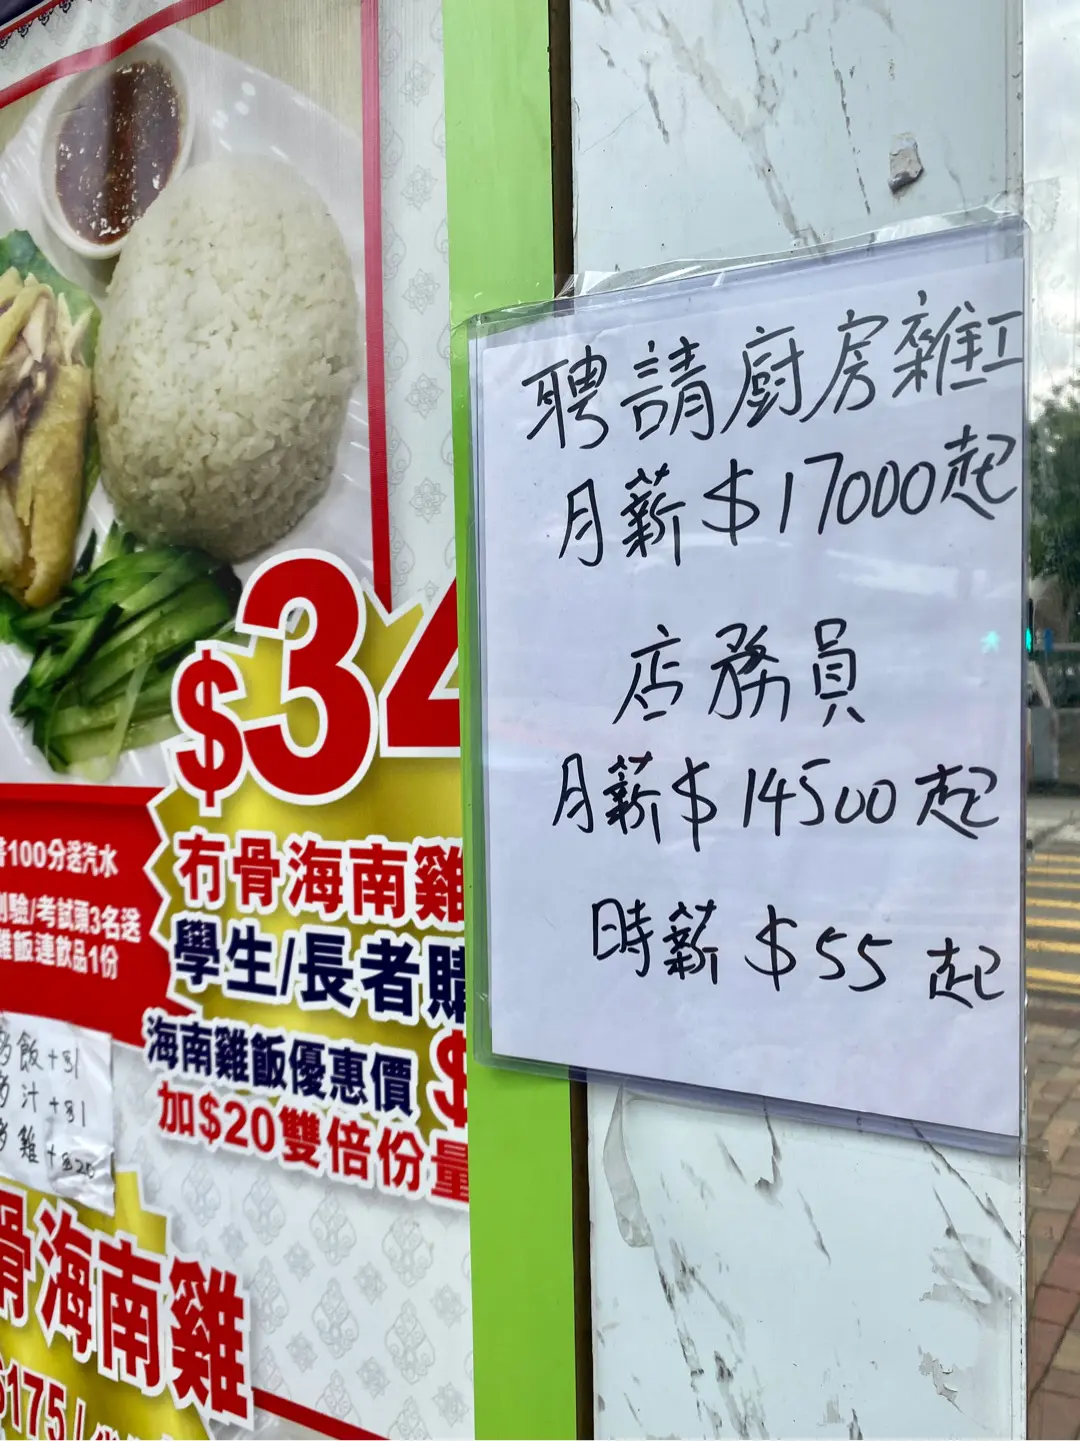 $34
冇骨海南雞
學生/長者購
海南雞飯優惠價 $
加$20雙倍份量
100分送汽水
驗/考試頭3名送
雞飯連飲品1份
飯+$1
汁+$1
雞+$20
骨海南雞
$175/
聘請廚房雜工
月薪$17000起
店務員
月薪$14500起
時薪$55起